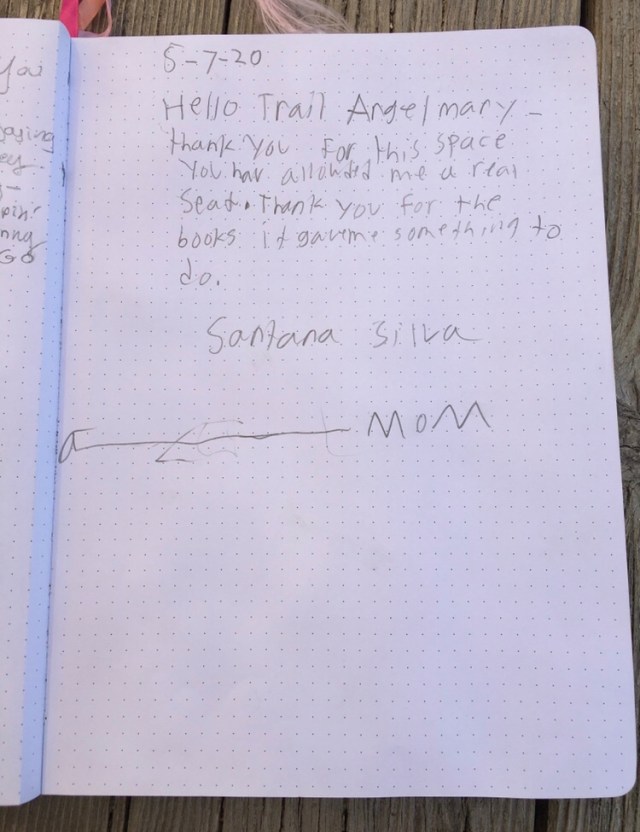 You
5-7-20
Hello Trail Angel mary -
thank you for this space
You hav allowded me a real
Seat. Thank you for the
books it gaveme something to
do.
Santana Silva
MOM
GO